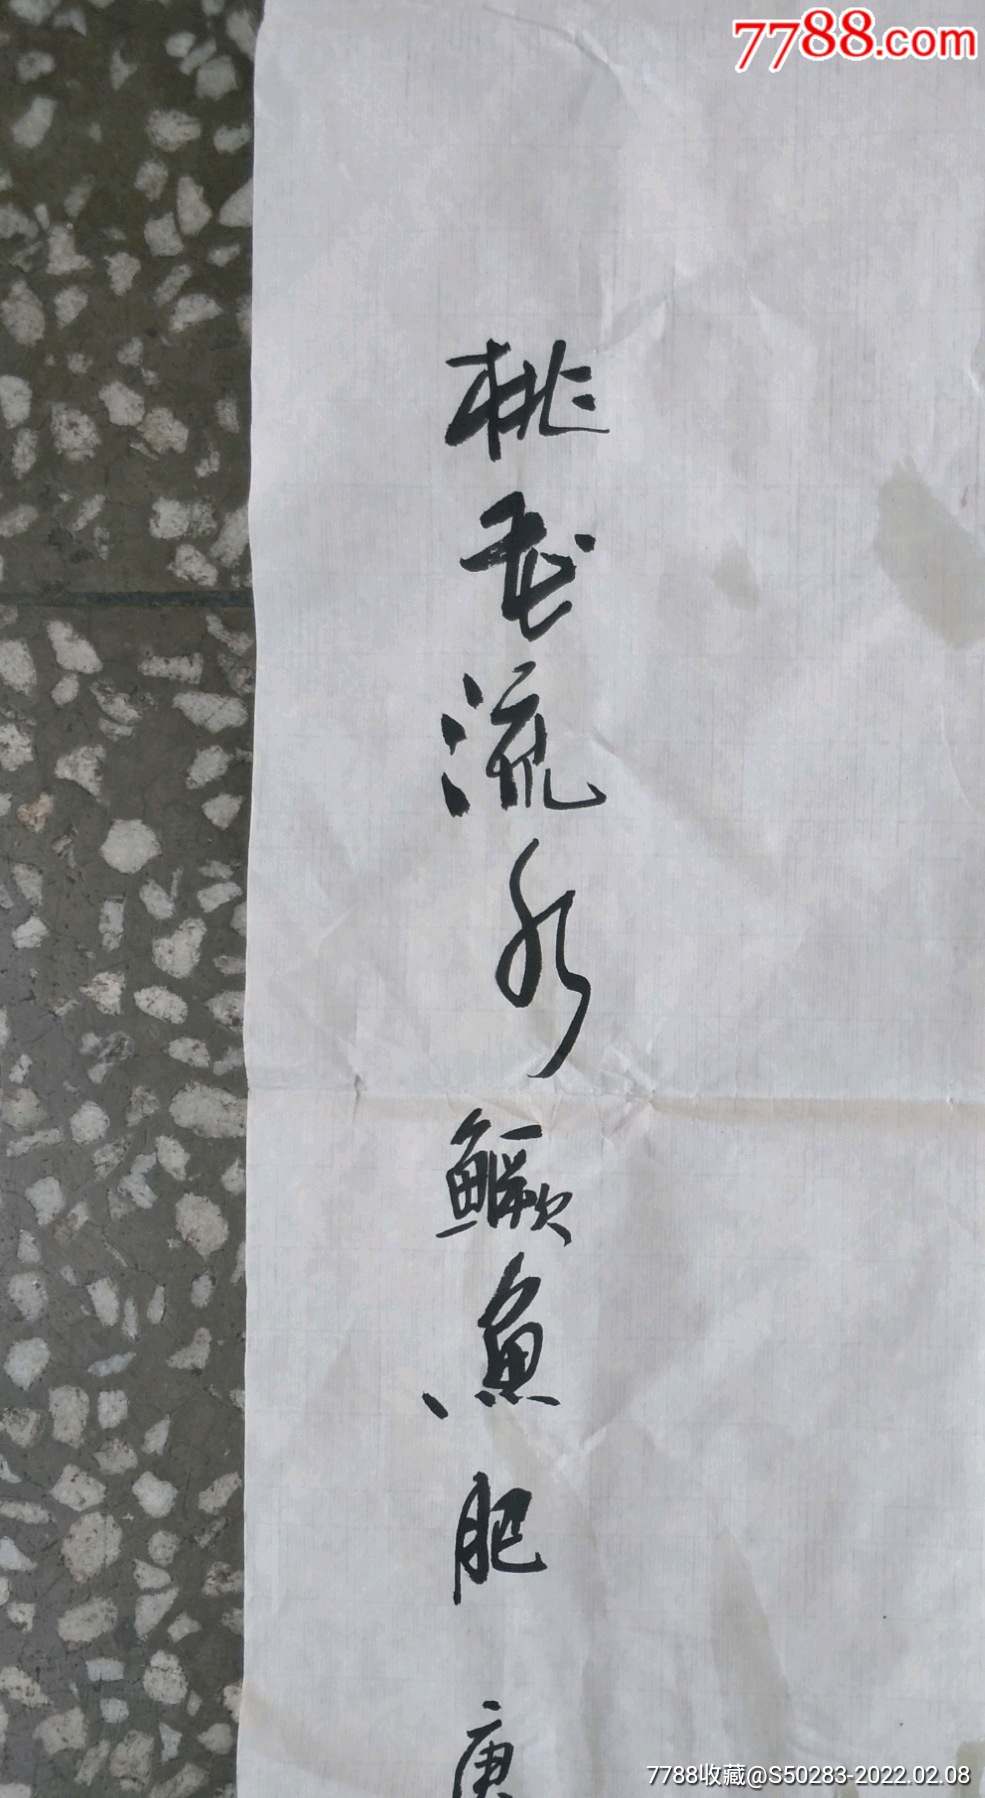 7788.com
桃花流水鱖魚肥
庚
7788收藏@S50283-2022.02.08